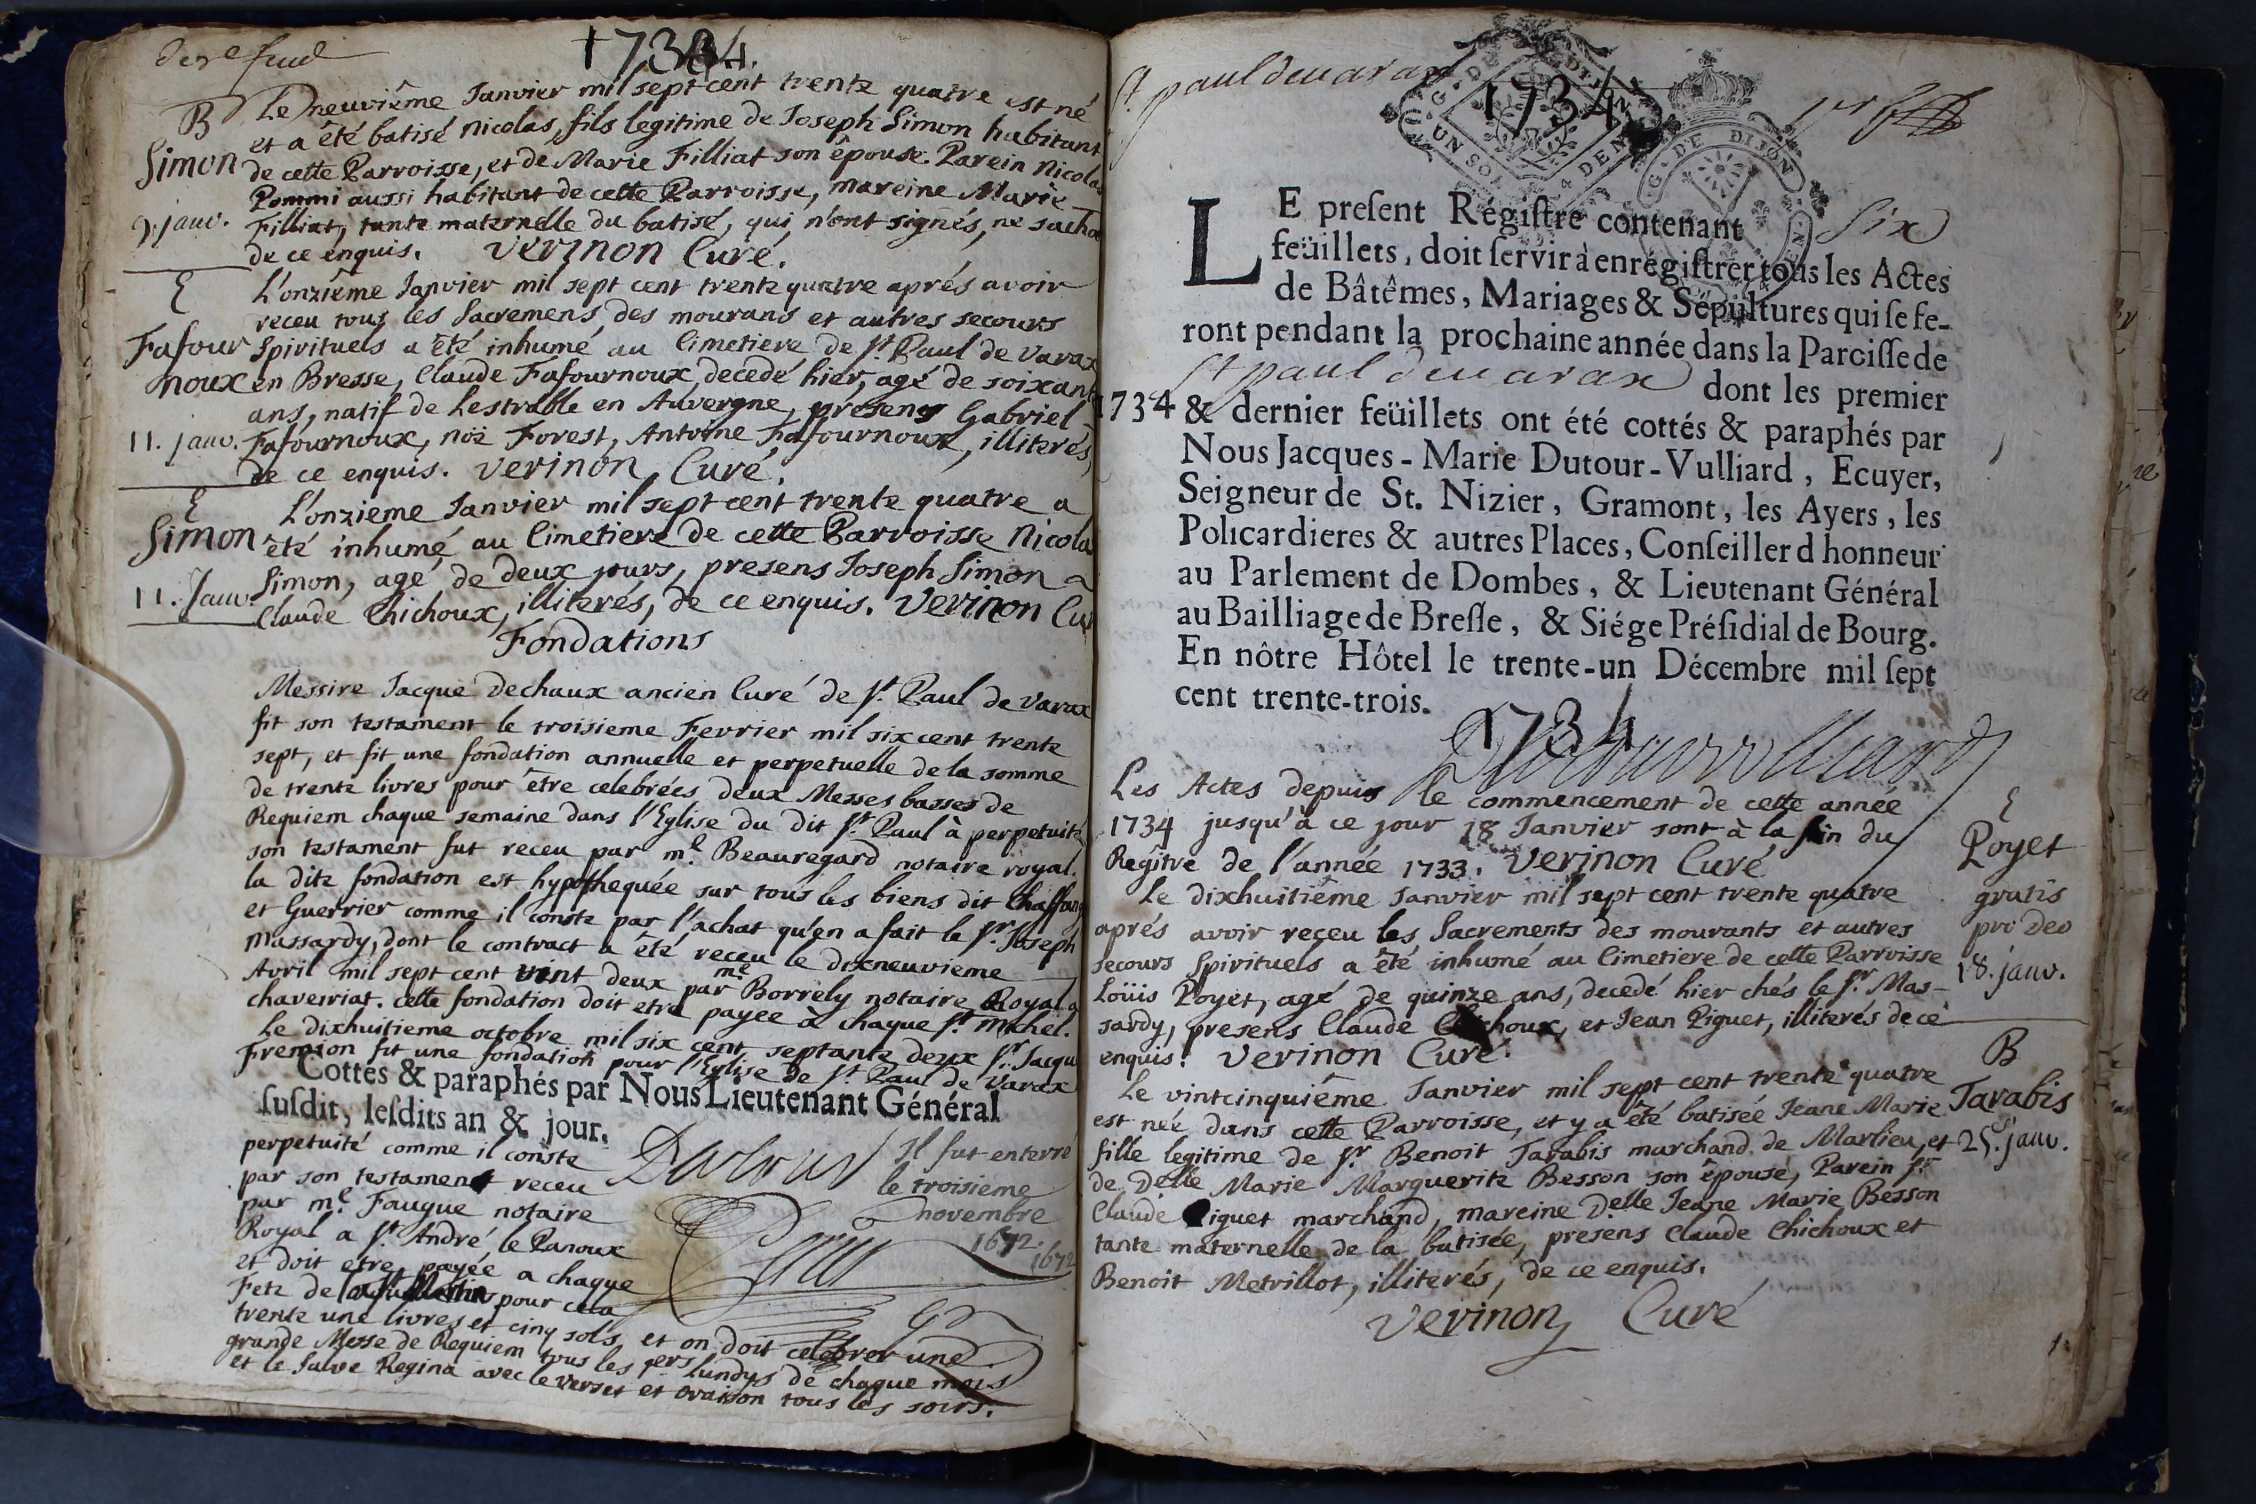 1734.
B
Simon
9. janv.
Le neuviême Janvier mil sept cent trente quatre est né
et a êté batisé Nicolas, fils legitime de Joseph Simon habitant
de cette Parroisse, et de Marie Filliat son êpouse. Parein Nicolas
Pommi aussi habitant de cette Parroisse, mareine Marie
Filliat, tante maternelle du batisé, qui n'ont signés, ne sacha
de ce enquis. Verinon Curé.
E
Fafour
noux
11. janv.
L'onziême Janvier mil sept cent trente quatre aprés avoir
receu tous les Sacremens des mourans et autres secours
Spirituels a êté inhumé au Cimetiere de St. Paul de Varax
en Bresse, Claude Fafournoux, decedé hier, agé de soixante
ans, natif de Lestrable en Auvergne, presens Gabriel
Fafournoux, noë Forest, Antoine Fafournoux, illiterés,
de ce enquis. Verinon Curé.
E
Simon
11. Janv.
L'onzieme Janvier mil sept cent trente quatre a
êté inhumé au Cimetiere de cette Parroisse Nicola
Simon, agé de deux jours, presens Joseph Simon
Claude Chichoux, illiterés, de ce enquis. Verinon Cur
Fondations
Messire Jacque Dechaux ancien Curé de St. Paul de Varax
fit son testament le troisieme Fevrier mil six cent trente
sept, et fit une fondation annuelle et perpetuelle de la somme
de trente livres pour être celebrées deux Messes basses de
Requiem chaque semaine dans l'Eglise du dit St. Paul à perpetuité,
son testament fut receu par me. Beauregard notaire royal.
la dite fondation est hypothequée sur tous les biens dit Chaffang
et Guerrier comme il conste par l'achat qu'en a fait le Sr. Joseph
Massardy, dont le contract a êté receu le dixneuvieme
Avril mil sept cent vint deux par me Borrely notaire Royal a
chaveiriat. cette fondation doit etre payée à chaque St. Michel.
Le dixhuitieme octobre mil six cent septante deux Sr. Jacque
Fremion fit une fondation pour l'Eglise de St. Paul de Varax
Cottés & paraphés par Nous Lieutenant Général
susdit, lesdits an & jour.
perpetuité comme il conste
par son testament receu
par me. Fauque notaire
Royal a St. André le Panoux
et doit etre payée a chaque
Fete de pour cela
trente une livres et cinq sols, et on doit celebrer une
grande Messe de Requiem tous les 1ers lundys de chaque mois
et le Salve Regina avec le verset et oraison tous les soirs.
Il fut enterré
le troisieme
novembre
1672.
1672
St paul devarax
1734
G. DE DIJON
UN SOL 4 DEN
LE present Régistre contenant six
feüillets, doit servir à enregistrer tous les Actes
de Bâtêmes, Mariages & Sépultures qui se fe-
ront pendant la prochaine année dans la Parcisse de
St paul devarax dont les premier
1734 & dernier feüillets ont été cottés & paraphés par
Nous Jacques-Marie Dutour-Vulliard, Ecuyer,
Seigneur de St. Nizier, Gramont, les Ayers, les
Policardieres & autres Places, Conseiller d honneur
au Parlement de Dombes, & Lieutenant Général
au Bailliage de Bresse, & Siége Présidial de Bourg.
En nôtre Hôtel le trente-un Décembre mil sept
cent trente-trois.
1734
Les Actes depuis le commencement de cette année
1734 jusqu'à ce jour 18 Janvier sont à la fin du
Regître de l'année 1733. Verinon Curé
E
Poyet
gratis
pro deo
18. janv.
Le dixhuitiême Janvier mil sept cent trente quatre
aprés avoir reçeu les Sacrements des mourants et autres
secours Spirituels a êté inhumé au Cimetiere de cette Parroisse
Loüis Poyet, agé de quinze ans, decedé hier chés le Sr. Mas-
sardy, presens Claude Chichoux, et Jean Piguet, illiterés de ce
enquis. Verinon Curé.
B
Tarabis
25. janv.
Le vintcinquiême Janvier mil sept cent trente quatre
est née dans cette Parroisse, et y a êté batisée Jeane Marie
fille legitime de Sr Benoit Tarabis marchand de Marlieu, et
de Delle Marie Marguerite Besson son êpouse, Parein Sr
Claude Piguet marchand, mareine Delle Jeane Marie Besson
tante maternelle de la batisée, presens Claude Chichoux et
Benoit Metrillot, illiterés, de ce enquis.
Verinon Curé